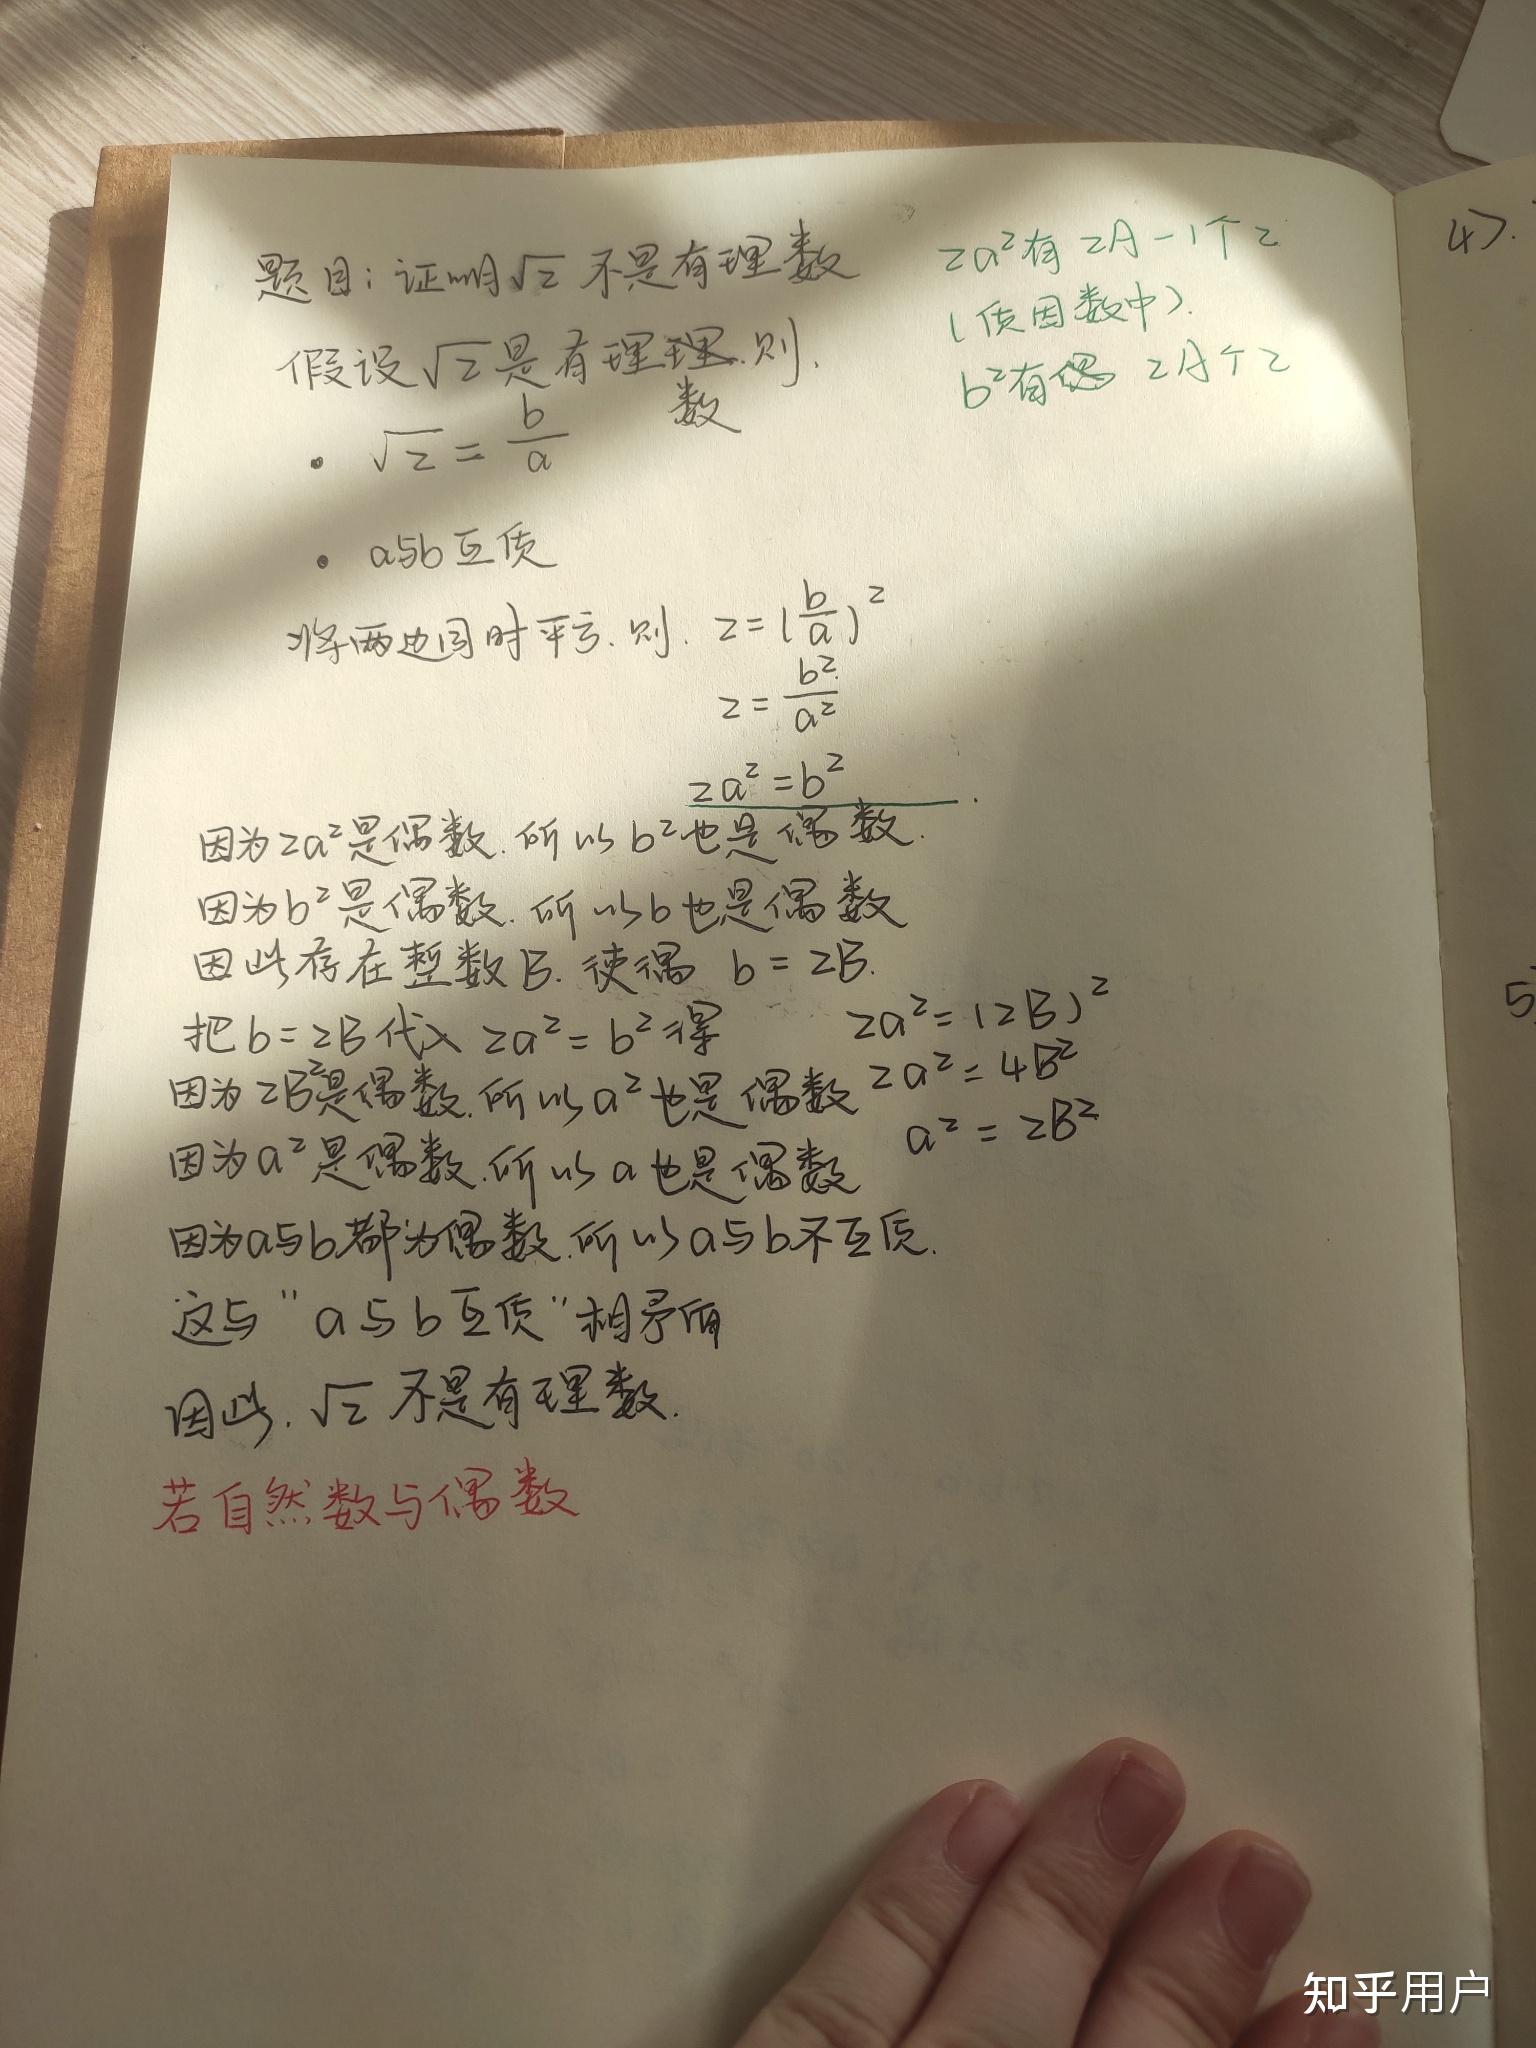 题目：证明√2 不是有理数
假设√2是有理数.则.
• √2 = b/a
• a与b互质
将两边同时平方.则. 2=(b/a)²
2=b²/a²
2a²=b²
2a²有 2A-1个2
(质因数中).
b²有偶 2A个2
因为2a²是偶数.所以b²也是偶数.
因为b²是偶数.所以b也是偶数
因此存在整数B.使偶 b=2B.
把b=2B代入 2a²=b²得 2a²=(2B)²
因为2B²是偶数.所以a²也是偶数 2a²=4B²
因为a²是偶数.所以a也是偶数 a²=2B²
因为a与b都为偶数.所以a与b不互质.
这与"a与b互质"相矛盾
因此.√2 不是有理数.
若自然数与偶数
4).
5
知乎用户